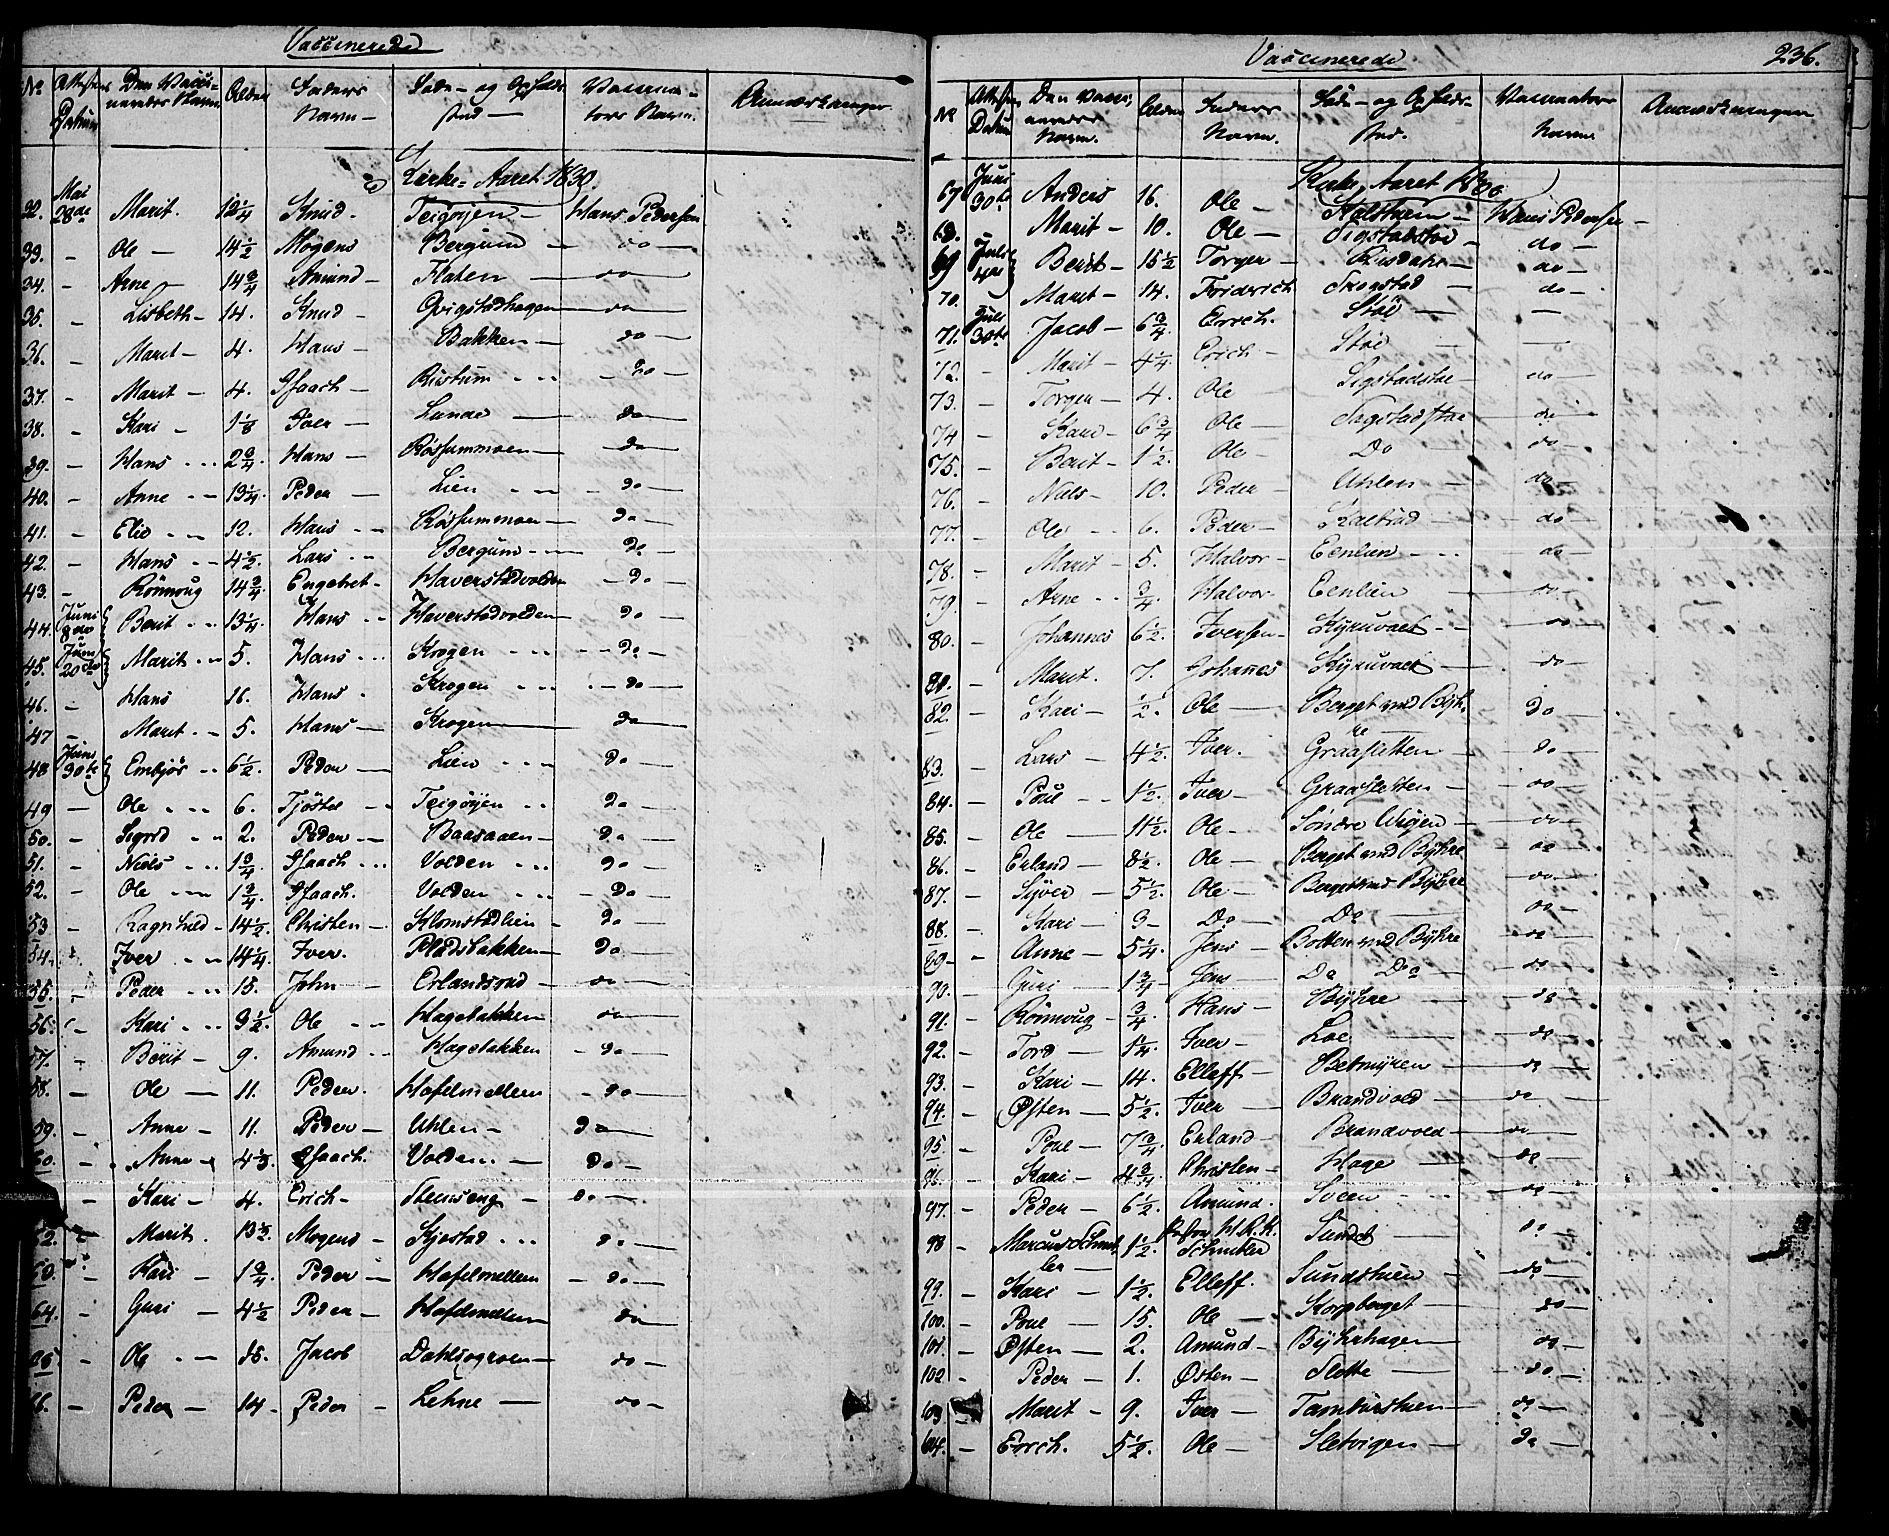 Vaccinerede
No Attestens Datum Den Vacci- neredes Navn Alder Faders Navn Føde- og Opholds- sted Vaccina- tors Navn Anmærkninger
Kirke-Aaret 1830.
32. Mai 28de Marit. 12 1/4 Knud Teigøyen Hans Pedersen
33. - Ole 14 1/2 Mogens Bergum do
34. - Arne 14 3/4 Amund Flaten do
35. - Lisbeth 14. Knud Qvigstadhagen do
36. - Marit 4. Hans Bakken do
37. - Marit 4. Isaach Rustum do
38. - Kari 1/8 Iver Lunde do
39. - Hans 2 3/4 Hans Røssummoen do
40. - Anne 13 1/4 Peder Lien do
41. - Elie 12. Hans Røssummoen do
42. - Hans 4 1/2 Lars Bergum do
43. - Rönnoug 14 3/4 Engebret Haverstadvolden do
44. Juni 8de Berit 13 1/4 Hans Haverstadvolden do
45. Juni 20de Marit 5. Hans Krogen do
46. - Hans 16. Hans Krogen do
47 - Marit 5. Hans Krogen do
48 Juni 30te Embjør 6 1/2 Peder Lien do
49 - Ole 6. Tjøstel Teigøyen do
50. - Sigrid 2. Peder Baasaaen do
51. - Niels 1 3/4 Isaach Volden do
52. - Ole 1 3/4 Isaach. Volden do
53 - Ragnhild 14 1/2 Christen Klomstadlien do
54. Iver 14 1/4 Iver. Pladsbakken do
55. - Peder 15. John Erlandsrud do
56. - Kari 3 1/2 Ole Hagebakken do
57. - Berit 9. Amund Hagebakken do
58. - Ole 11. Peder. Hafelmellem do
59. - Anne 11. Peder Uhlen do
60. - Anne 4 1/2 Isaach. Volden do
- Kari 4. Erich Stenseng do
62. - Marit. 13 1/2 Mogens Kjøstad do
63. - Kari 1 3/4 Peder Hafelmellem do
64. - Guri 4 1/2 Peder Hafelmellem do
65 - Ole 18. Jacob Dahlsøgroen do
66. - Peder 14 Peder Lehne do
Vaccinerede 236.
No Attestens Datum Den Vacci- neredes Navn. Alder Faders Navn. Føde- og Opholds- sted. Vaccinators Navn Anmærkninger
Kirke-Aaret 1830
67 Juni 30te Anders 16. Ole Hans Pedersen
68. Marit 10. Ole Sigstadstøe do
69 Juli 4de Berit 15 1/2 Torger do
70. Marit 14. Friderich Skogstad do
71. Juli 30te Jacob 6 3/4 Errich. Støe
72. - Marit 4 1/4 Erich Støe
73. - Torger 4. Ole Sigstadstøe do
74 - Kari 6 3/4 Ole Sagstadstøe do
75. - Berit 1 1/2 Ole Do do
76. - Niels 10. Peder Uhlen do
77. - Ole 6. Peder Kalrud do
78. - Marit 5. Halvor Eenlien do
79. - Arne 3/4 Halvor Eenlien do
80. - Johannes 6 1/2 Iversen do
81. - Marit. 7. Johanes do
82. - Kari 1/2 Ole Berget ved Byh- re do
83. - Lars 4 1/2 Iver. Graasletten do
84. - Poul 1 1/2 Iver Graasletten do
85. - Ole 11 1/2 Ole Söndre Wigen do
86. - Erland 8 1/2 Ole Berget ved Byhre do
87. - Syver 5 1/2 Ole Berget ved Byhre do
88. - Kari 3 Do Do do
89. - Anne 5 1/4 Jens Botten ved Byhre do
90. - Guri 1 3/4 Jens Do Do do
91. - Rönnoug 3/4 Hans Byhre do
92. - Tord 1 1/4 Iver Loe do
93. - Kari 14. Elleff Betmyren do
94. - Østen 5 1/2 Iver Brandvold do
95. - Poul 7 3/4 Erland Brandvold do
96. - Kari 4 3/4 Christen Hage do
97. - Peder 6 1/2 Amund. Sveen do
98 - Marcus Schnit- ler 1 1/2 Schnitler Sundt do
99. - Kari 1 1/2 Elleff. Sundstuen do
100. - Poul 15. Ole Korpberget do
101. - Østen 2. Amund Byhrhagen do
102 - Peder 1. Østen Slette do
103 - Marit 9. Iver Tamburstuen do
104. - Errich. 5 1/2 Ole Sletvigen do